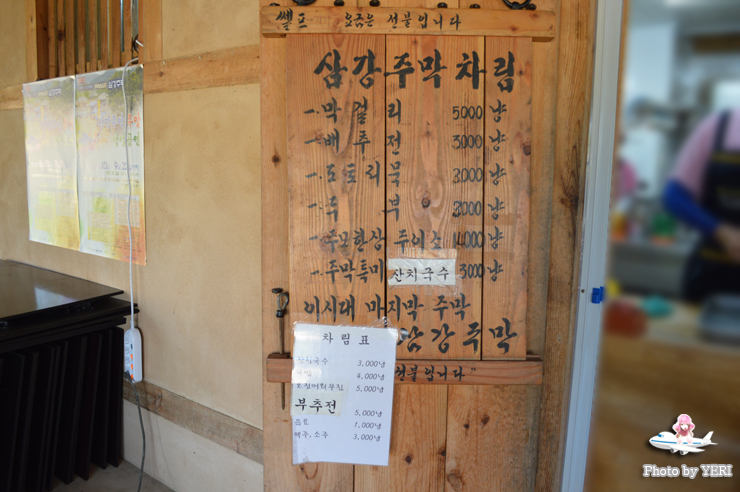 쎌프 요금은 선불입니다
삼강주막차림
-막걸리 5000냥
-배추전 3000냥
-도토리묵 3000냥
-두부 2000냥
-주모한상 주이소 14000냥
-주막특미 산채국수 3000냥
이시대 마지막 주막
삼강주막
선불입니다"
차림표
국수 3,000냥
4,000냥
5,000냥
부추전 5,000냥
음료 1,000냥
맥주, 소주 3,000냥
Photo by YERI